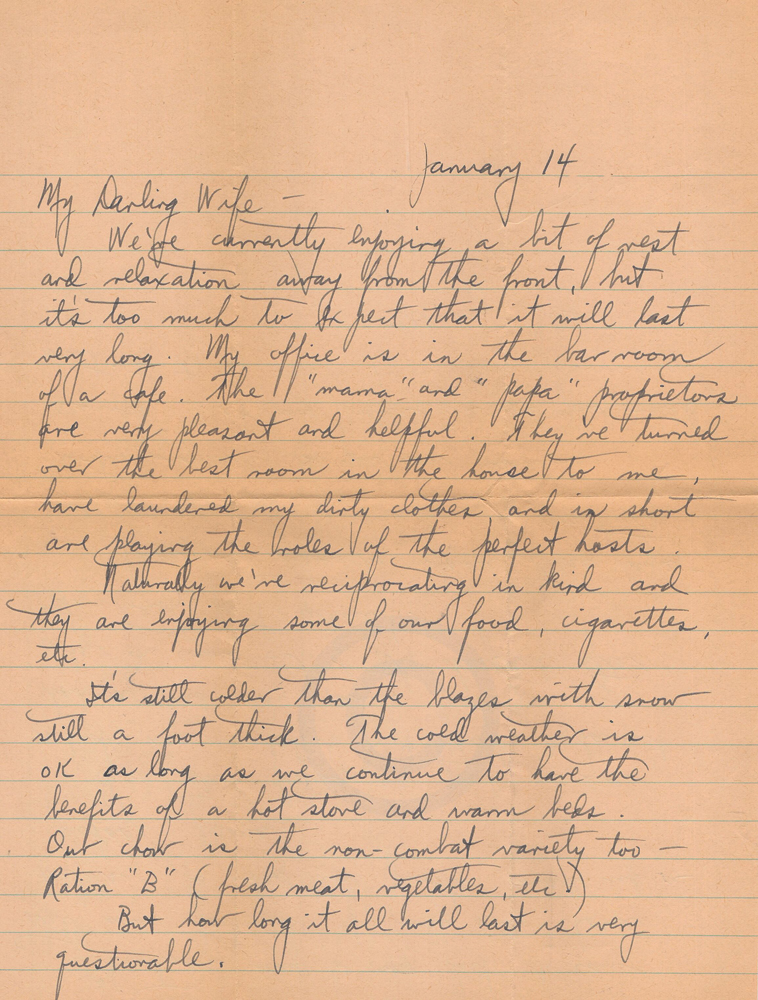 January 14
My Darling Wife —
We're currently enjoying a bit of rest
and relaxation away from the front, but
it's too much to expect that it will last
very long. My office is in the bar room
of a cafe. The "mama" and "papa" proprietors
are very pleasant and helpful. They've turned
over the best room in the house to me,
have laundered my dirty clothes and in short
are playing the roles of the perfect hosts.
Naturally we've reciprocating in kind and
they are enjoying some of our food, cigarettes,
etc.
It's still colder than the blazes with snow
still a foot thick. The cold weather is
OK as long as we continue to have the
benefits of a hot stove and warm beds.
Our chow is the non-combat variety too —
Ration "B" (fresh meat, vegetables, etc)
But how long it all will last is very
questionable.